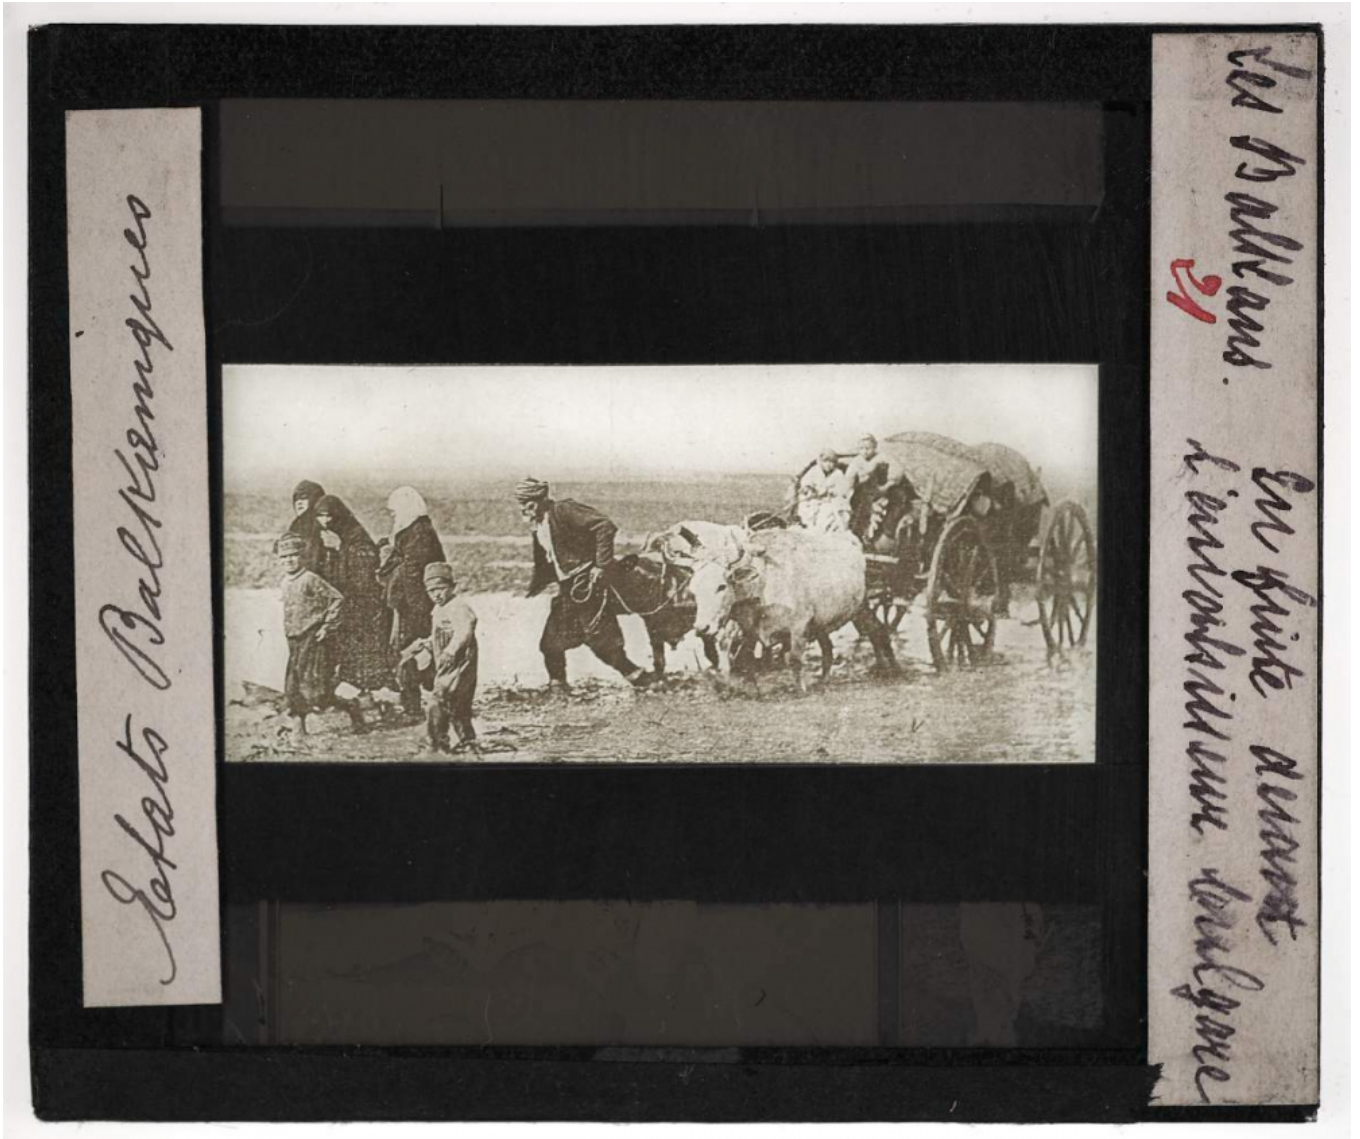 Etats Balkaniques
Les Balkans.
21
En fuite devant
l'envahisseur bulgare